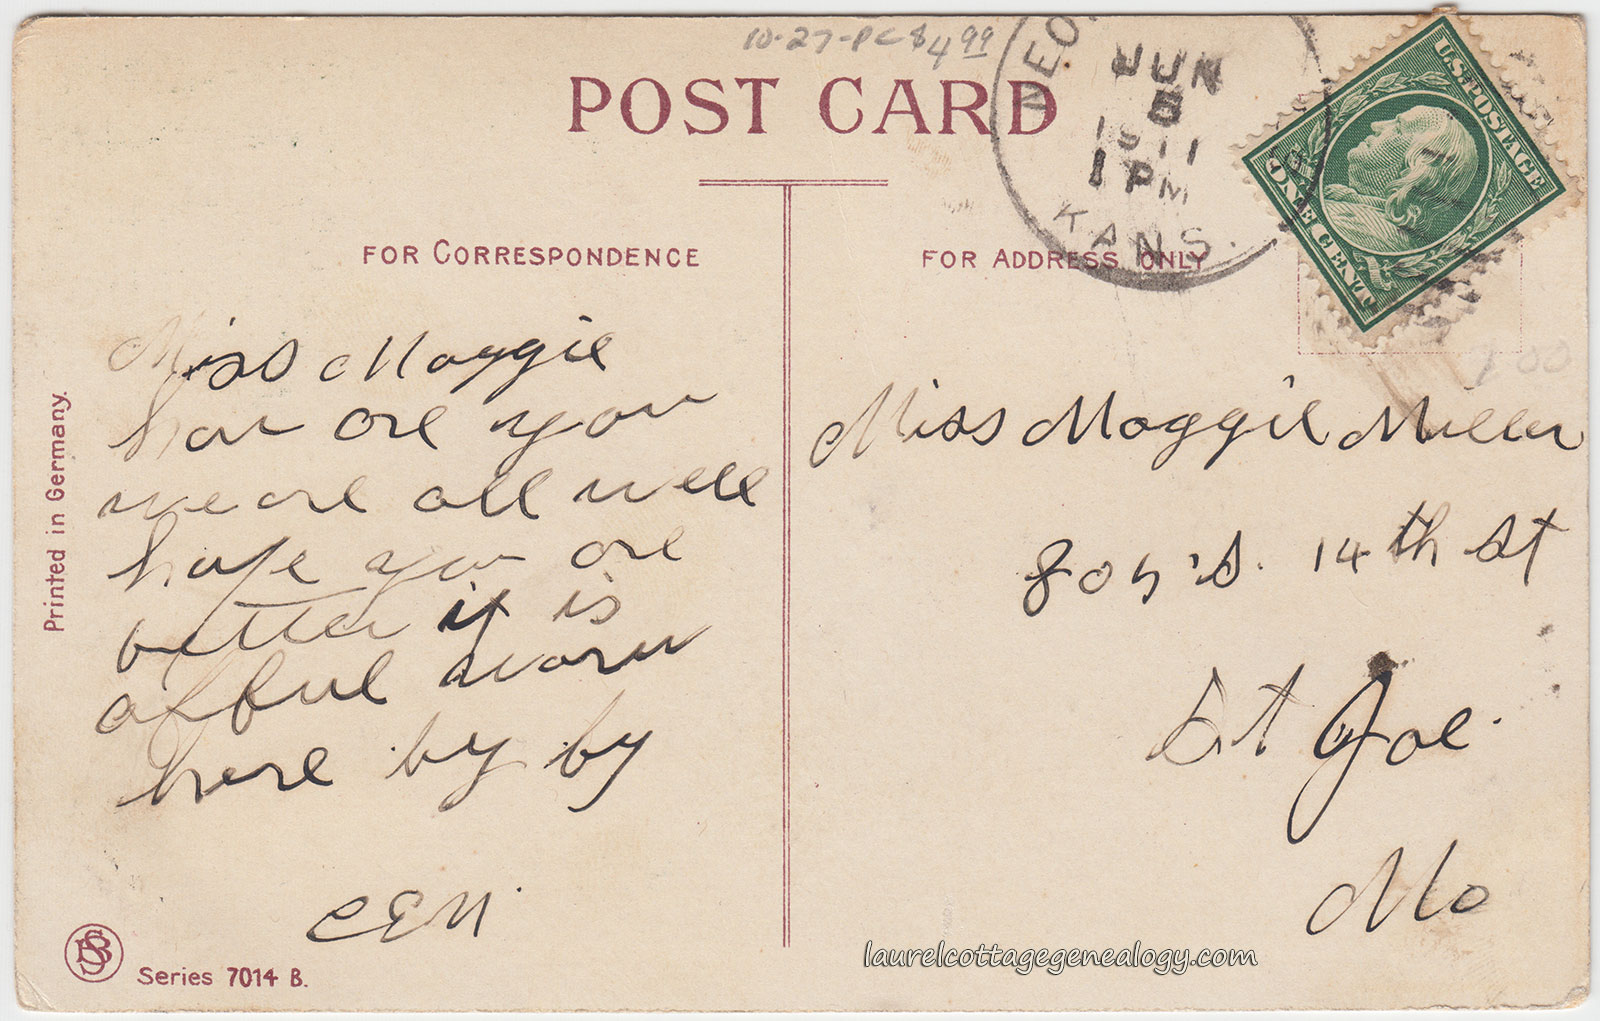 10-27-PC8 4 99
POST CARD
NEO
JUN
5
1911
1 PM
KANS.
U.S. POSTAGE
ONE CENT
FOR CORRESPONDENCE
FOR ADDRESS ONLY
Miss Maggie
how are you
we are all well
hope you are
better it is
afful warm
here by by
CEM.
Miss Maggie Miller
St
St Joe.
Mo
Printed in Germany.
Series 7014 B.
laurelcottagegenealogy.com